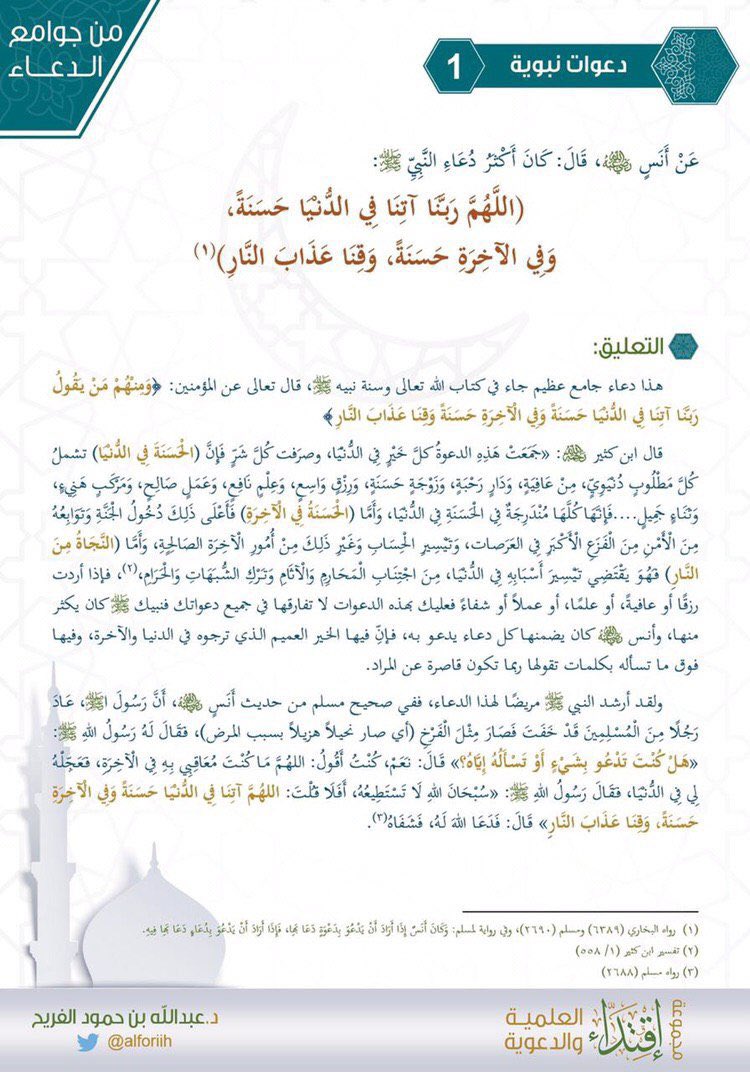 من جوامع
الدعـــاء
دعوات نبوية
1
عَنْ أَنَسٍ رضي الله عنه، قَالَ: كَانَ أَكْثَرُ دُعَاءِ النَّبِيِّ ﷺ:
(اللَّهُمَّ رَبَّنَا آتِنَا فِي الدُّنْيَا حَسَنَةً،
وَفِي الآخِرَةِ حَسَنَةً، وَقِنَا عَذَابَ النَّارِ)(١)
التعليق:
هذا دعاء جامع عظيم جاء في كتاب الله تعالى وسنة نبيه ﷺ، قال تعالى عن المؤمنين: ﴿وَمِنْهُمْ مَنْ يَقُولُ
رَبَّنَا آتِنَا فِي الدُّنْيَا حَسَنَةً وَفِي الْآخِرَةِ حَسَنَةً وَقِنَا عَذَابَ النَّارِ﴾
قال ابن كثير رحمه الله: «جَمَعَتْ هَذِهِ الدعوةُ كلَّ خَيْرٍ فِي الدُّنْيَا، وصرَفت كُلَّ شَرٍّ فَإِنَّ (الْحَسَنَةَ فِي الدُّنْيَا) تشملُ
كُلَّ مَطْلُوبٍ دُنْيَوِيٍّ، مِنْ عَافِيَةٍ، وَدَارٍ رَحْبَةٍ، وَزَوْجَةٍ حَسَنَةٍ، وَرِزْقٍ وَاسِعٍ، وَعِلْمٍ نَافِعٍ، وَعَمَلٍ صَالِحٍ، وَمَرْكَبٍ هَنِيءٍ،
وَثَنَاءٍ جَمِيلٍ....فَإِنَّهَا كُلَّهَا مُنْدَرِجَةٌ فِي الْحَسَنَةِ فِي الدُّنْيَا، وَأَمَّا (الْحَسَنَةُ فِي الْآخِرَةِ) فَأَعْلَى ذَلِكَ دُخُولُ الْجَنَّةِ وَتَوَابِعُهُ
مِنَ الْأَمْنِ مِنَ الْفَزَعِ الْأَكْبَرِ فِي العَرَصات، وَتَيْسِيرِ الْحِسَابِ وَغَيْرِ ذَلِكَ مِنْ أُمُورِ الْآخِرَةِ الصَّالِحَةِ، وَأَمَّا (النَّجَاةُ مِنَ
النَّارِ) فَهُوَ يَقْتَضِي تَيْسِيرَ أَسْبَابِهِ فِي الدُّنْيَا، مِنَ اجْتِنَابِ الْمَحَارِمِ وَالْآثَامِ وَتَرْكِ الشُّبَهَاتِ وَالْحَرَامِ،(٢)، فإذا أردت
رزقًا أو عافيةً، أو علمًا، أو عملاً أو شفاءً فعليك بهذه الدعوات لا تفارقها في جميع دعواتك فنبيك ﷺ كان يكثر
منها، وأنس رضي الله عنه كان يضمنها كل دعاء يدعو به، فإنّ فيها الخير العميم الذي ترجوه في الدنيا والآخرة، وفيها
فوق ما تسأله بكلمات تقولها ربما تكون قاصرة عن المراد.
ولقد أرشد النبي ﷺ مريضًا لهذا الدعاء، ففي صحيح مسلم من حديث أَنَسٍ رضي الله عنه، أَنَّ رَسُولَ اللهِ ﷺ، عَادَ
رَجُلًا مِنَ الْمُسْلِمِينَ قَدْ خَفَتَ فَصَارَ مِثْلَ الْفَرْخِ (أي صار نحيلاً هزيلاً بسبب المرض)، فقَالَ لَهُ رَسُولُ اللهِ ﷺ:
«هَلْ كُنْتَ تَدْعُو بِشَيْءٍ أَوْ تَسْأَلُهُ إِيَّاهُ؟» قَالَ: نَعَمْ، كُنْتُ أَقُولُ: اللهُمَّ مَا كُنْتَ مُعَاقِبِي بِهِ فِي الْآخِرَةِ، فَعَجِّلْهُ
لِي فِي الدُّنْيَا، فقَالَ رَسُولُ اللهِ ﷺ: «سُبْحَانَ اللهِ لَا تَسْتَطِيعُهُ، أَفَلَا قُلْتَ: اللهُمَّ آتِنَا فِي الدُّنْيَا حَسَنَةً وَفِي الْآخِرَةِ
حَسَنَةً، وَقِنَا عَذَابَ النَّارِ» قَالَ: فَدَعَا اللهَ لَهُ، فَشَفَاهُ(٣).
(١) رواه البخاري (٦٣٨٩) ومسلم (٢٦٩٠)، وفي رواية لمسلم: وَكَانَ أَنَسٌ إِذَا أَرَادَ أَنْ يَدْعُوَ بِدَعْوَةٍ دَعَا بِهَا، فَإِذَا أَرَادَ أَنْ يَدْعُوَ بِدُعَاءٍ دَعَا بِهَا فِيهِ.
(٢) تفسير ابن كثير (١/ ٥٥٨)
(٣) رواه مسلم (٢٦٨٨)
مجموعة
إقتداء
العلمية
والدعوية
د.عبدالله بن حمود الفريح
@alforiih